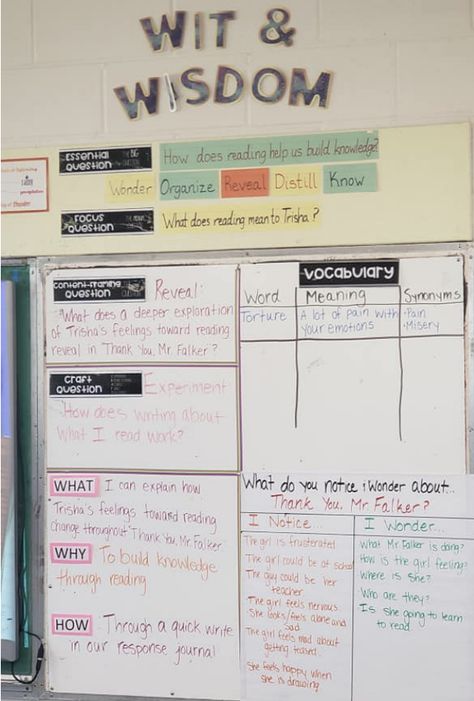 WIT &
WISDOM
Essential
Question
How does reading help us build knowledge?
Wonder Organize Reveal Distill Know
Focus
Question
What does reading mean to Trisha?
Content-Framing
Question
Reveal:
What does a deeper exploration
of Trisha's feelings toward reading
reveal in Thank You, Mr. Falker?
Craft
Question
Experiment:
How does writing about
what I read work?
WHAT I can explain how
Trisha's feelings toward reading
change throughout "Thank You, Mr. Falker
WHY To build knowledge
through reading
HOW Through a quick write
in our response journal
Vocabulary
Word Meaning Synonyms
Torture A lot of pain with
your emotions
·Pain
·Misery
What do you notice & Wonder about...
Thank You, Mr. Falker?
I Notice...
The girl is frusterated
The girl could be at school
The guy could be her
teacher
The girl feels nervous
She looks/feels alone and
sad
The girl feels mad about
getting teased
She feels happy when
she is drawing
I Wonder...
What Mr. Falker is doing?
How is the girl feeling?
Where is she?
Who are they?
Is she going to learn
to read